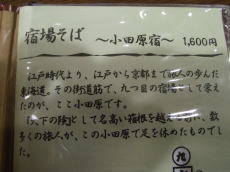 宿場そば　～小田原宿～　1,600円
江戸時代より、江戸から京都まで旅人の歩んだ
東海道。その街道筋で、九つ目の宿場として栄え
たのが、ここ小田原です。
「天下の険」として名高い箱根を越える前に、数
多くの旅人が、この小田原で足を休めたものでし
た。